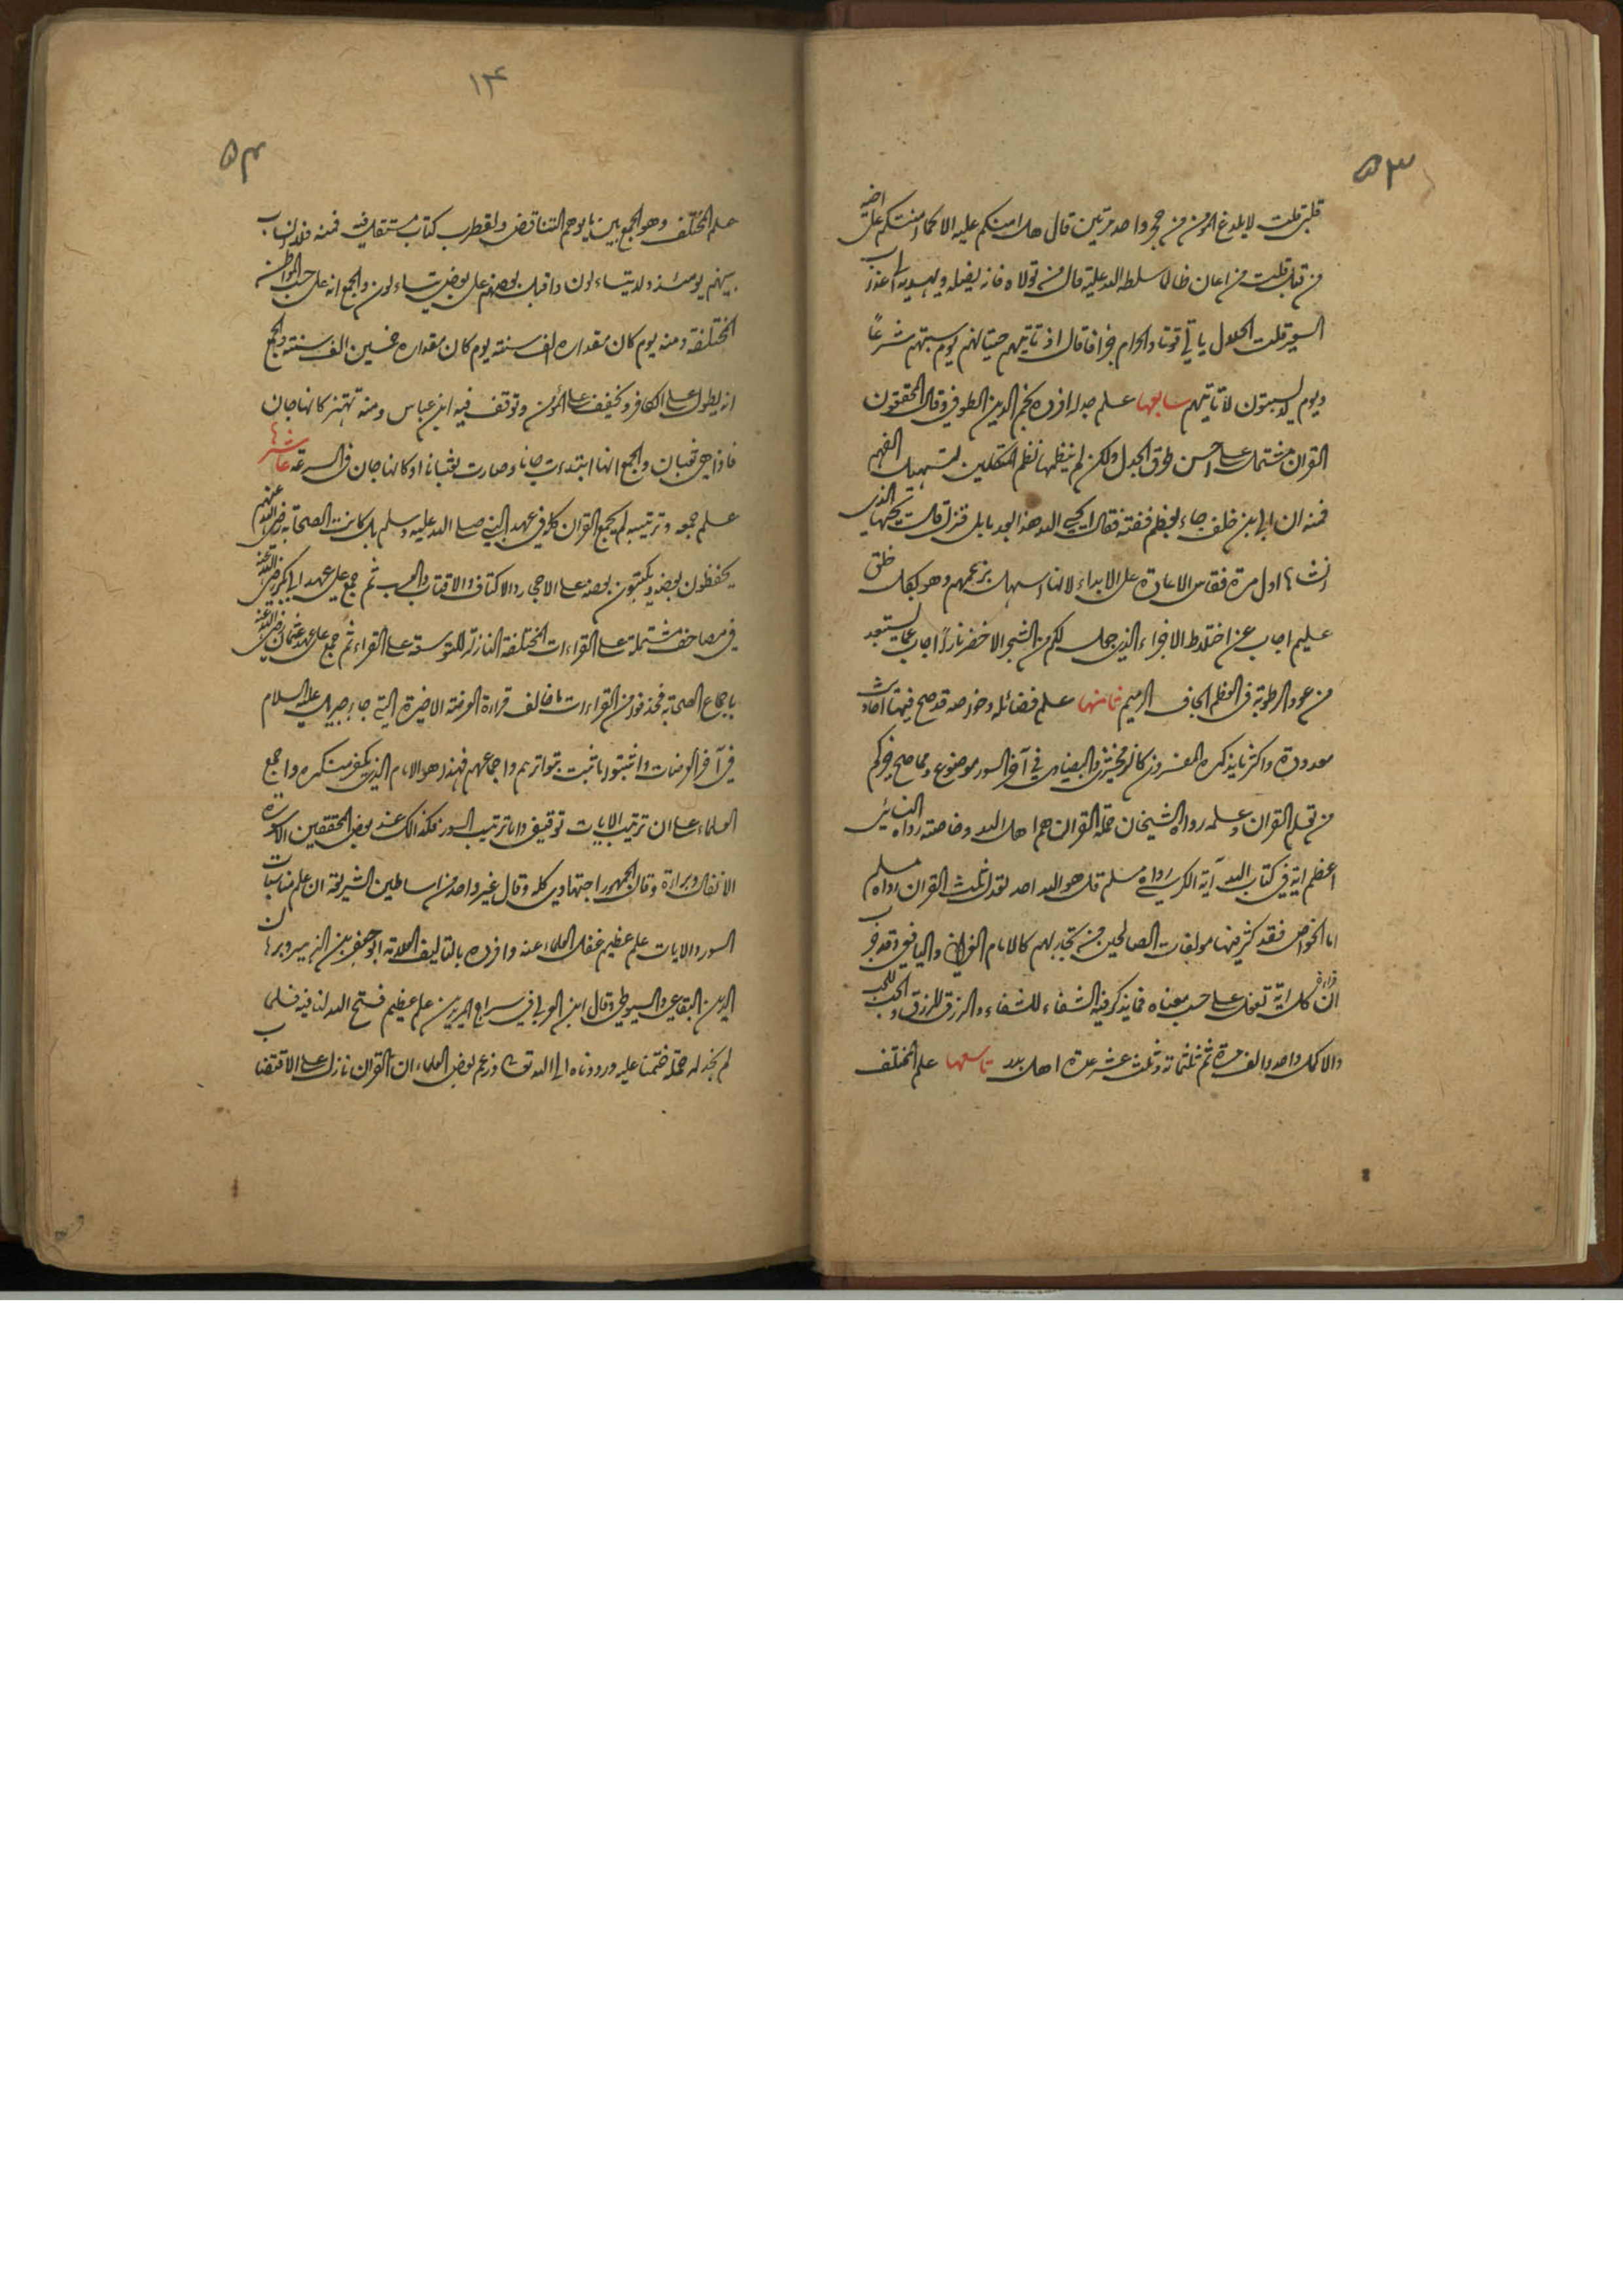 ٥٣
قلبي قلت لا يلدغ المؤمن من جحر واحد مرتين قال هل امنكم عليه الا كما امنتكم على اخيه
من قبل قلت من اعان ظالما سلطه الله عليه قال من تولاه فانه يضله ويهديه الى عذاب
السعير قلت الحلال ياتي قوتا والحرام جزافا قال اذ تاتيهم حيتانهم يوم سبتهم شرعًا
ويوم لا يسبتون لا تاتيهم سابعها علم جدله افرده نجم الدين الطوفي وقال المحققون
القران مشتمل على احسن طرق الجدل ولكن لم ينظمها نظم المتكلمين لتسهيل الفهم
فمنه ان ابي بن خلف جاء بعظم ففته فقال ايحيي الله هذا بعد ما بلى فنزل قل يحييها الذي
انشأها اول مرة فقاس الاعادة على الابداء لانها اسهل بزعمهم وهو بكل خلق
عليم اجاب عن اختلاط الاجزاء الذي جعل لكم من الشجر الاخضر نارًا اجاب عما يستبعد
من عود الرطوبة في العظم الجاف الرميم ثامنها علم فضائله وخواصه قد صح فيها احاديث
معدودة واكثر ما يذكره المفسرون كالزمخشري والبيضاوي في آخر السور موضوع ومما صح خيركم
من تعلم القران وعلمه رواه الشيخان حملة القران هم اهل الله وخاصته رواه النسائي
اعظم اية في كتاب الله آية الكرسي رواه مسلم قل هو الله احد تعدل ثلث القران رواه مسلم
اما الخواص فقد كثر فيها مولفات الصالحين من تجاربهم كالامام الغزالي واليافعي وقد جرب
ان قراءة كل اية تعمل على حسب معناه فما يذكر فيه الشفاء للشفاء والرزق للرزق والحب للحب
والا كمل واحد والف مرة ثم ثلثمائة وثلث عشر عدة اهل بدر تاسعها علم المختلف
١٤
٥٤
علم المختلف وهو الجمع بين ما يوهم التناقض ولقطرب كتاب مستقل فيه فمنه فلا انساب
بينهم يومئذ ولا يتساءلون واقبل بعضهم على بعض يتساءلون والجمع انه على حسب المواطن
المختلفة ومنه يوم كان مقداره الف سنة يوم كان مقداره خمسين الف سنة والجمع
انه يطول على الكافر ويخفف على المؤمن وتوقف فيه ابن عباس ومنه تهتز كانها جان
فاذا هي ثعبان والجمع انها ابتدءت جانا وصارت ثعبانا او كانها جان في السرعة عاشرها
علم جمعه وترتيبه لم يجمع القران كله في عهد النبي صلى الله عليه وسلم بل كانت الصحابة رضي الله عنهم
يحفظون بعضه ويكتبون بعضه على الاحجار والاكتاف والاقتاب والعسب ثم جمع على عهد ابي بكر رضي الله عنه
في مصاحف مشتملة على القراءات المختلفة النازلة للتوسعة على القراء ثم جمع على عهد عثمان رضي الله عنه
باجماع الصحابة فحذفوا من القراءات ما خالف قراءة العرضة الاخيرة التي جاء جبريل عليه السلام
في آخر العرضات واثبتوا ما ثبت بتواترهم واجماعهم فهذا هو الامام الذي يكفر منكره واجمع
العلماء على ان ترتيب الايات توقيفي واما ترتيب السور فكذالك عند بعض المحققين الا سورة
الانفال وبراءة وقال الجمهور اجتهادي كله وقال غير واحد من اساطين الشريعة ان علم مناسبات
السور والايات علم عظيم غفل العلماء عنه وافرده بالتاليف العلامة ابو جعفر بن الزبير وبرهان
الدين البقاعي والسيوطي وقال ابن العربي في سراج المريدين علم عظيم فتح الله لنا فيه فلما
لم نجد له حملة ختمنا عليه ورددناه الى الله تعالى وزعم بعض العلماء ان القران نازل على الاقتضاب